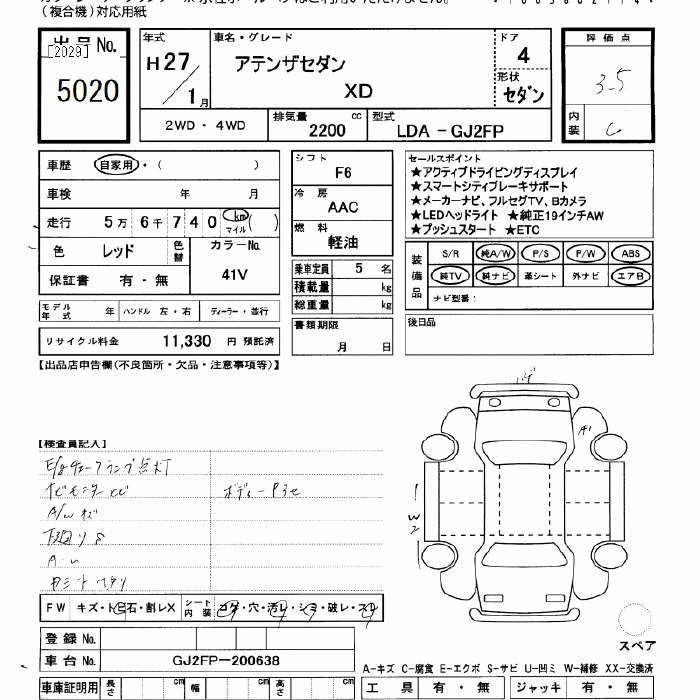 （複合機）対応用紙
出品 No.
[2029]
5020
年式
H27/1月
車名・グレード
アテンザセダン
XD
ドア
4
形状
セダン
評価点
3.5
内装
C
2WD・4WD
排気量
2200 cc
型式
LDA-GJ2FP
車歴 自家用・（ ）
車検 年 月
走行 5万 6千 7 4 0 km マイル ( )
色 レッド 色替
カラーNo.
41V
保証書 有・無
モデル年式 年 ハンドル 左・右 ディーラー・並行
リサイクル料金 11,330 円 預託済
シフト
F6
冷房
AAC
燃料
軽油
乗車定員 5 名
積載量 kg
総重量 kg
書類期限
月 日
セールスポイント
★アクティブドライビングディスプレイ
★スマートシティブレーキサポート
★メーカーナビ、フルセグTV、Bカメラ
★LEDヘッドライト ★純正19インチAW
★プッシュスタート ★ETC
装備品
S/R 純A/W P/S P/W ABS
純TV 純ナビ 革シート 外ナビ エアB
ナビ型番：
後日品
【出品店申告欄(不良箇所・欠品・注意事項等)】
【検査員記入】
A/W キズ
A1
W2
FW キズ・トビ石・割レX
シート内装 コゲ・穴・汚レ・シミ・破レ・スレ
登録 No.
車台 No. GJ2FP-200638
車庫証明用 長さ cm 幅 cm 高さ cm
スペア
A-キズ C-腐食 E-エクボ S-サビ U-凹ミ W-補修 XX-交換済
工具 有・無 ジャッキ 有・無